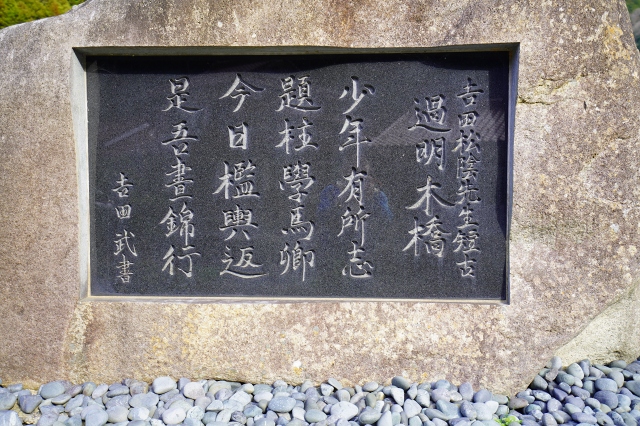 吉田松陰先生短古
過明木橋
少年有所志
題柱學馬卿
今日檻輿返
是吾晝錦行
吉田武書